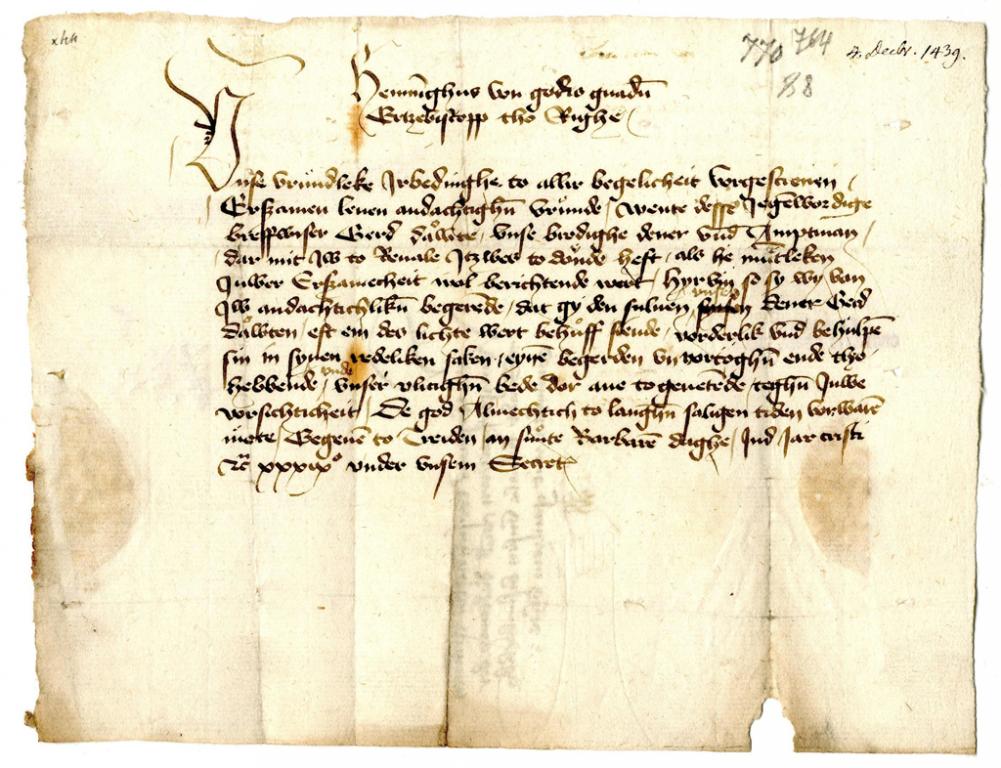 xxx
770 764 4. Decbr. 1439.
88
Henninghus von godis gnadn̄
Ertzebisscopp tho Righe
Vnse vrundleke Irbedinghe to allir begelicheit vorgescreuen
Erszamen leuen andachtighn̄ vrunde / Wente desse Jegenwordige
breffwiser Gerd vnse birdighe dener vnd Amptman /
dar mit Jw to Reuale Itzwes to donde heft / als he mutleken
Juwer Erszamecheit wol berichtende wert / Hyrvm̄ so sy wy van
Jw andachtichlikn̄ begerēde / dat gy den suluen vnsen dener Gerd
eft em des lichte wert behuff siende / vorderlik vnd behulpē
sin in synen redeliken saken / eynē begerden vn̄vortoghn̄ ende tho
hebbende / vnde vnser vlitighn̄ bede dar ane to genetēde teghn̄ Juwe
vorsichticheit / De god Almechtich to langhn̄ saligen tiden vorwarē
mote / Gegeuē to Treiden / an sunte Barbarē daghe / Jnd Jar cristi
xxxix° vnder vnsem Secret